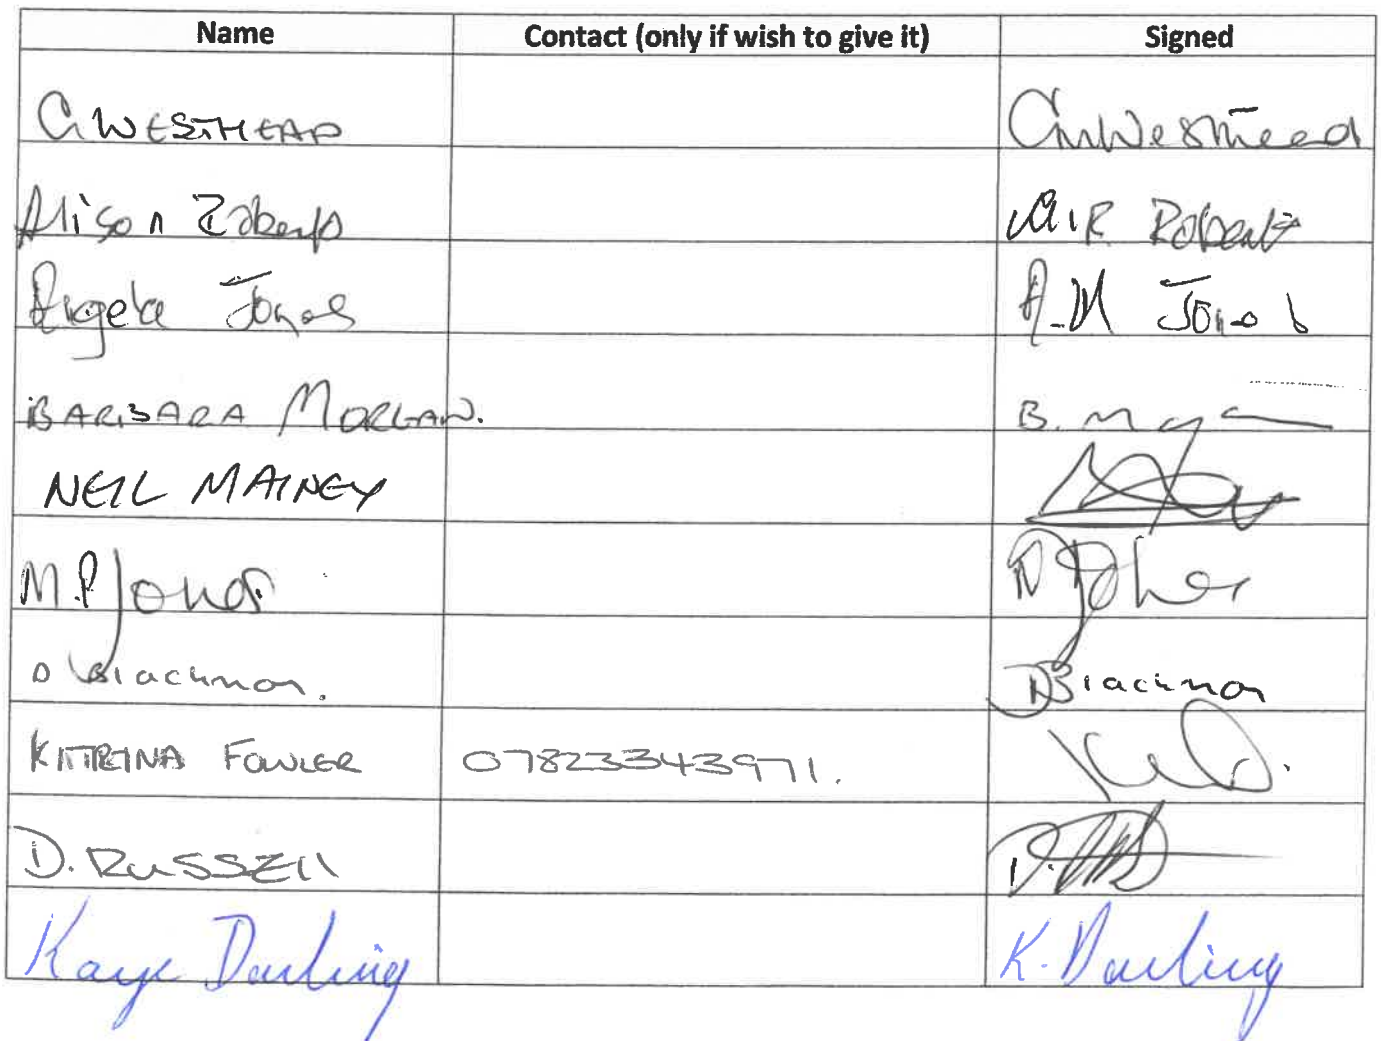 Name Contact (only if wish to give it) Signed
C. WESTHEAD CMWesthead
Alison Roberts Roberts
Angela Jones A.M Jones
BARBARA MORGAN. B. Morgan
NEIL MAINEY
M.P Jones Jones
D Blackmon. D Blackmon
KATRINA FOWLER 07823343971.
D. RUSSELL
Kaye Darling K. Darling